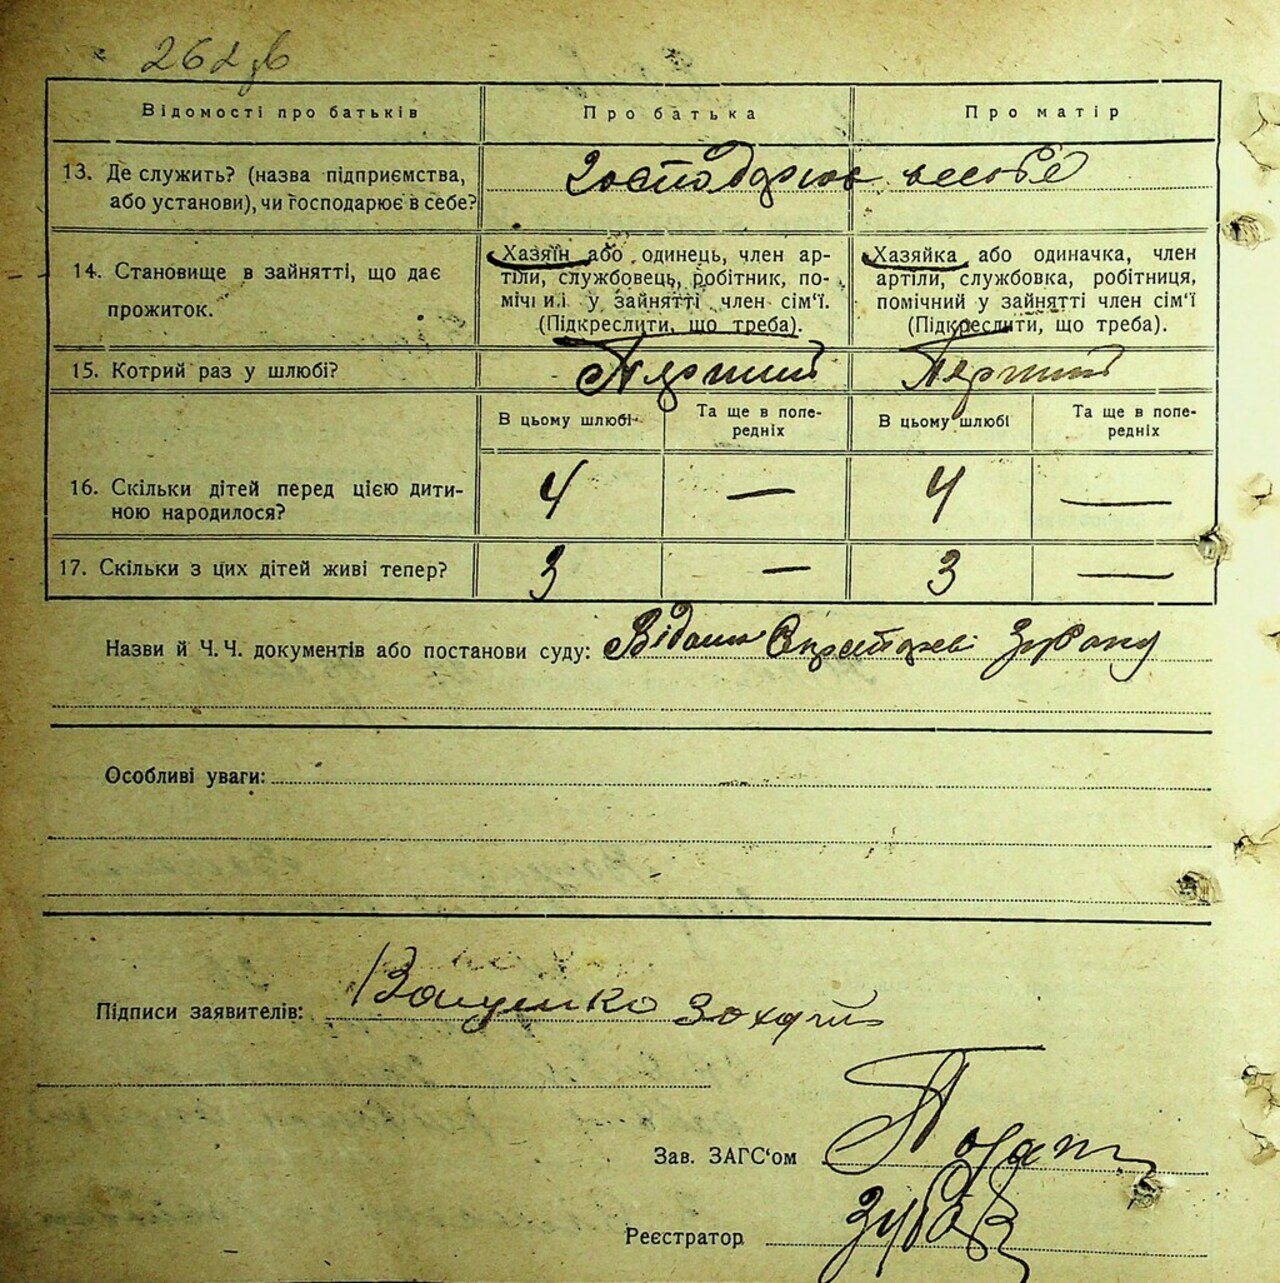 262 зв
Відомості про батьків
Про батька
Про матір
13. Де служить? (назва підприємства, або установи), чи господарює в себе?
Господарює в себе
14. Становище в зайнятті, що дає прожиток.
Хазяїн або одинець, член ар-
тілі, службовець, робітник, по-
мічний у зайнятті член сім'ї.
(Підкреслити, що треба).
Хазяйка або одиначка, член
артіли, службовка, робітниця,
помічний у зайнятті член сім'ї
(Підкреслити, що треба).
15. Котрий раз у шлюбі?
Перший
Перший
В цьому шлюбі
Та ще в попе-
редніх
В цьому шлюбі
Та ще в попе-
редніх
16. Скільки дітей перед цією дити-
ною народилося?
4 — 4 —
17. Скільки з цих дітей живі тепер?
3 — 3 —
Назви й Ч. Ч. документів або постанови суду:
Особливі уваги:
Підписи заявителів: Ващенко Захарій
Зав. ЗАГС'ом
Реєстратор